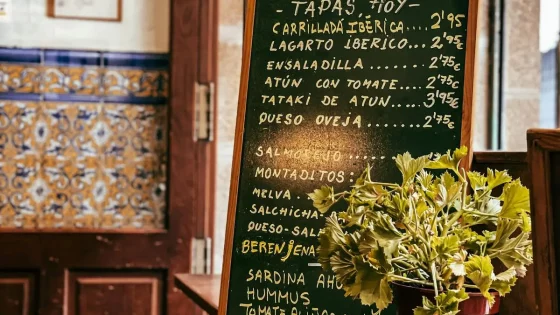 - TAPAS HOY -
CARRILLADA IBÉRICA.... 2'95
LAGARTO IBERICO... 2'75€
ENSALADILLA ....... 2'75€
ATÚN CON TOMATE.... 2'75€
TATAKI DE ATUN.... 3'95€
QUESO OVEJA ........ 2'75€
SALMOREJO ......
MONTADITOS:
MELVA .
SALCHICHA-
QUESO-
BERENJENA
SARDINA
HUMMUS